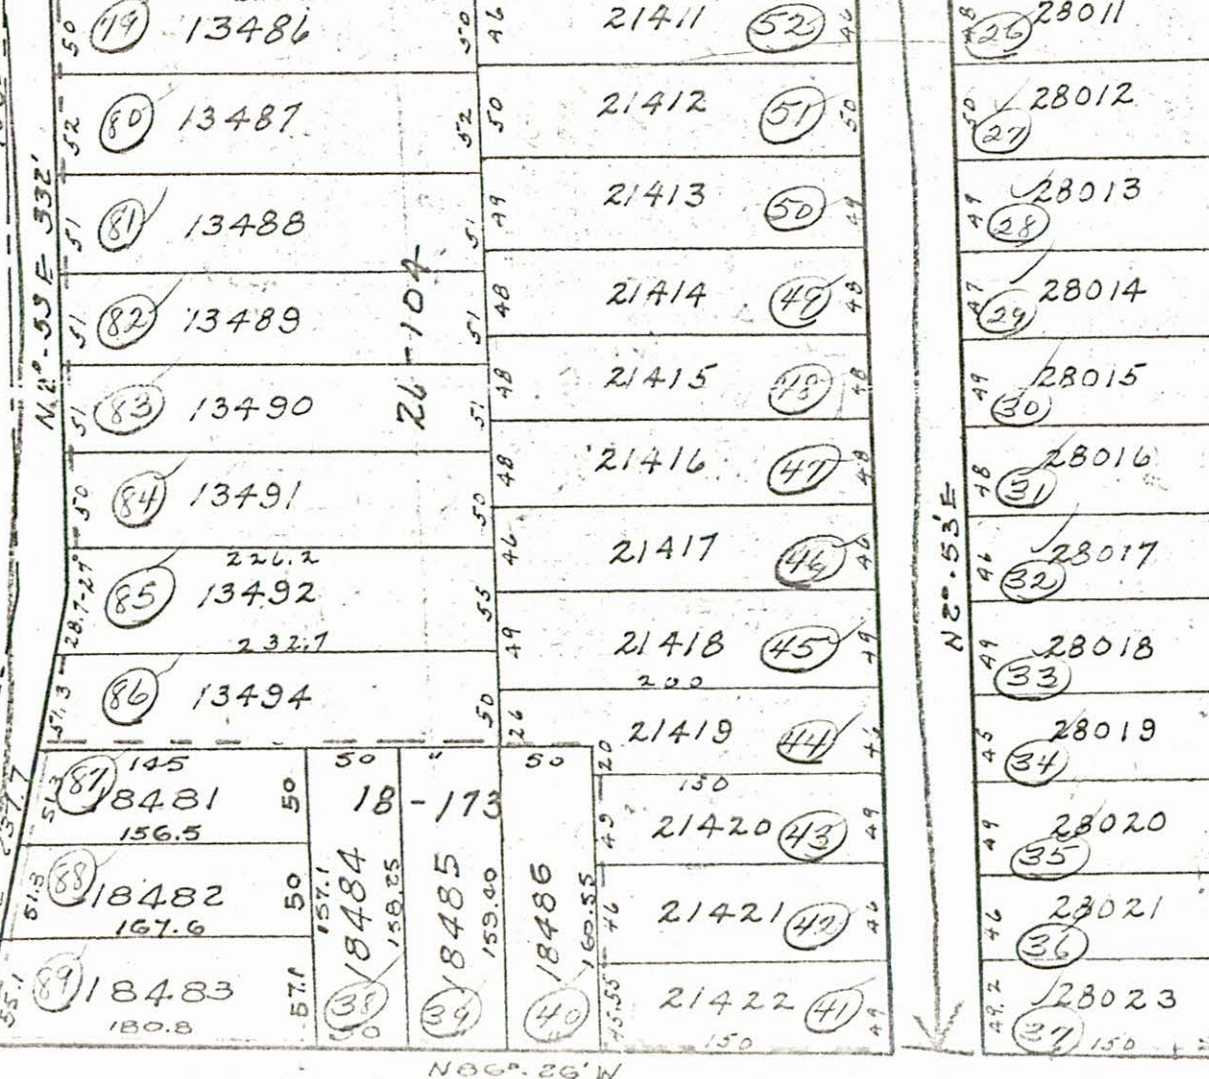 50 79 13486 50
52 80 13487 52
51 81 13488 51
51 82 13489 51
51 83 13490 51
50 84 13491 50
226.2
28.7-27 85 13492 55
232.7
57.3 86 13494 50
N.2°-53 E 332'
26-104
145
51.3 87 18481 50
156.5
51.3 88 18482 50
167.6
55.1 89 18483 57.1
180.8
50 " 50
18-173
157.1 18484 158.25 38
18485 159.40 39
18486 160.55 40
46 21411 52 46
50 21412 51 50
49 21413 50 49
48 21414 49 48
48 21415 48 48
48 21416 47 48
46 21417 46 46
49 21418 45 49
200
26 21419 44 46
20
150
49 21420 43 49
46 21421 42 46
45.55 21422 41 49
150
N2°-53'E
48 26 28011
50 27 28012
49 28 28013
47 29 28014
49 30 28015
48 31 28016
46 32 28017
49 33 28018
45 34 28019
49 35 28020
46 36 28021
49.2 37 28023
150
N86°-26'W